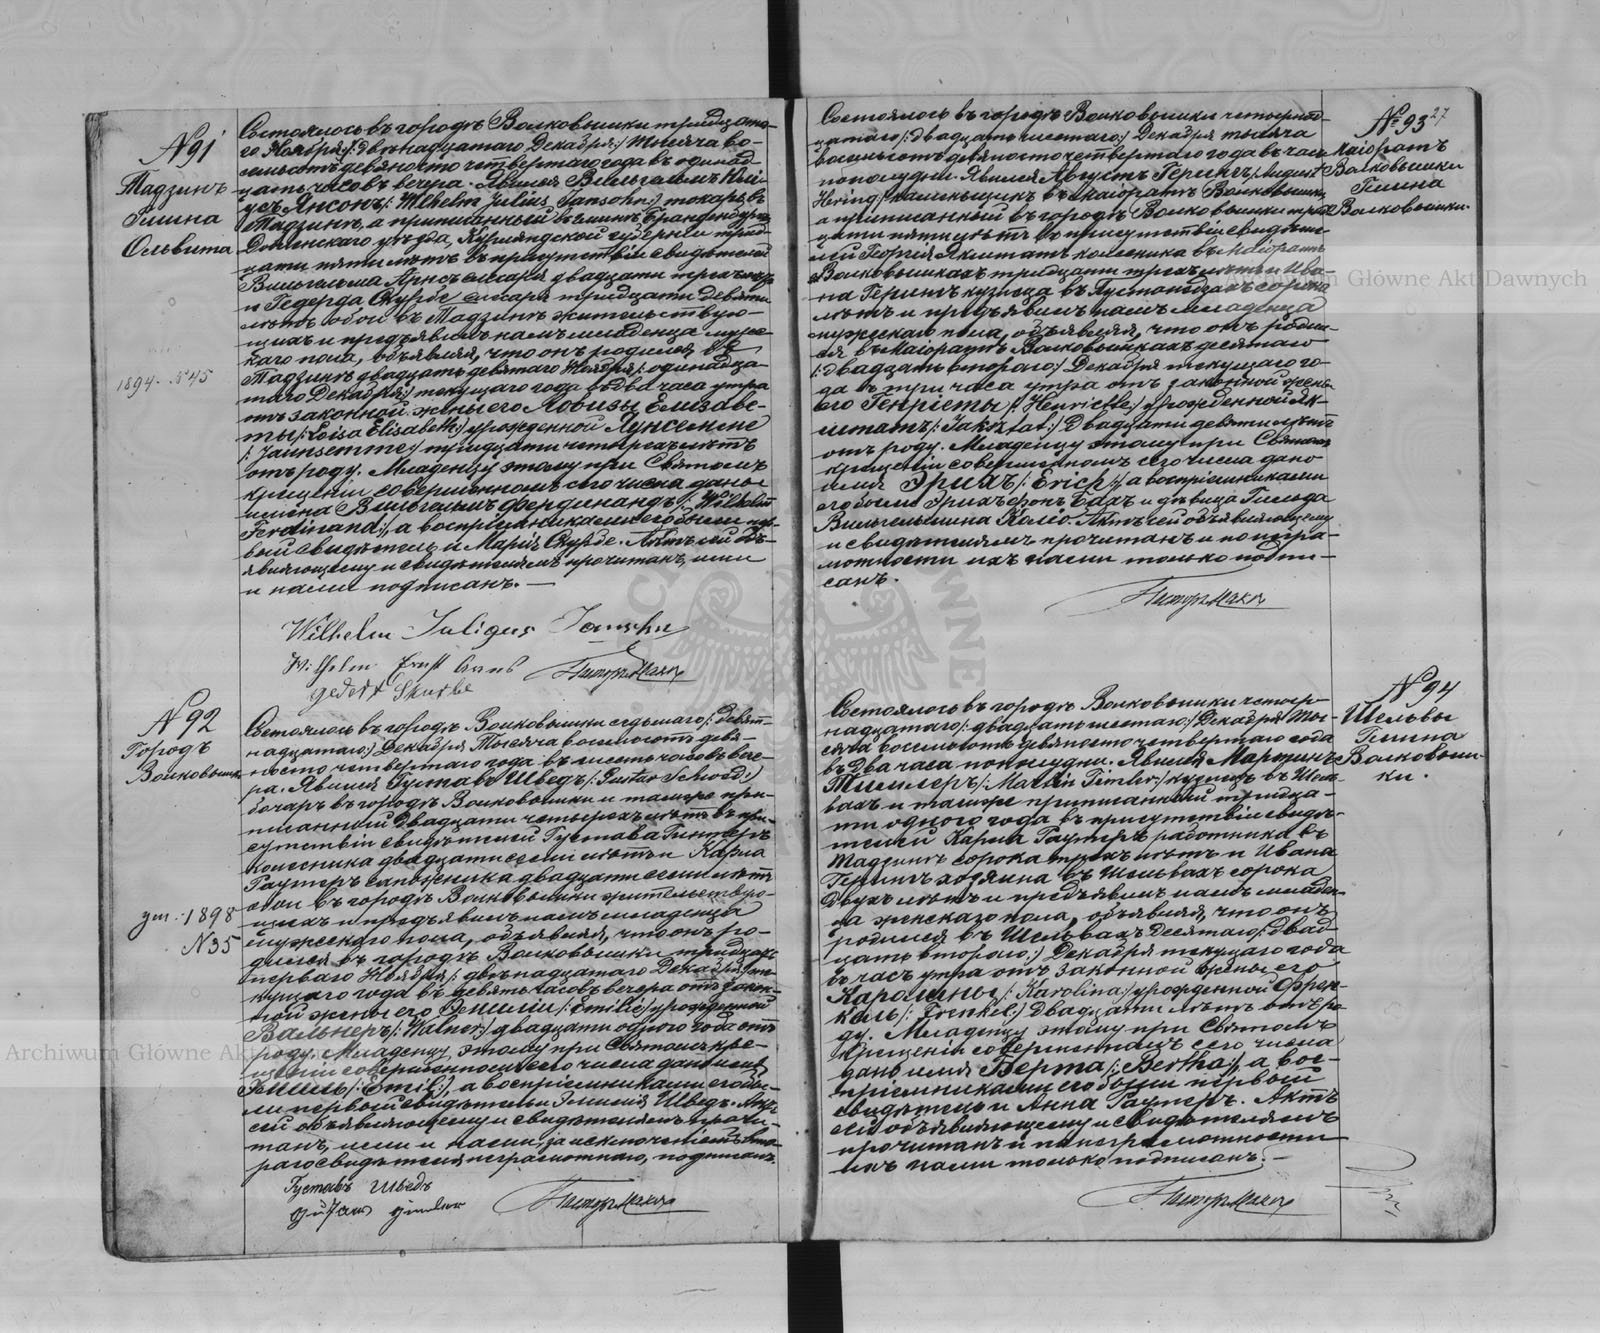 №91
Тадзинъ
Гмина
Ольвита
1894. №45
Состоялось въ городѣ Волковышки тридцата-
го Ноября /:двѣнадцатаго Декабря:/ тысяча во-
семьсотъ девяносто четвертаго года въ одинад-
цать часовъ вечера. Явился Вильгельмъ Юлі-
усъ Янсонъ /:Wilhelm Julius Jansohn:/ токарь въ
Тадзинѣ, а приписанный къ гминѣ Бранденбургъ
уѣзда, Курляндской губерніи трид-
цати пяти лѣтъ въ присутствіи свидѣтелей
Вильгельма Арнсъ двадцати трехъ лѣтъ
и Гедерда Скурбе тридцати девяти
лѣтъ обои въ Тадзинѣ жительствую-
щихъ и предъявилъ намъ младенца мужес-
каго пола, объявляя, что онъ родился въ
Тадзинѣ двадцать девятаго Ноября /:одинадца-
таго Декабря:/ текущаго года въ два часа утра
отъ законной жены его Ловизы Елизаве-
ты /:Loisa Elisabeth:/ урожденной Яунсемме
/:Jaunsemme:/ тридцати четырехъ лѣтъ
отъ роду. Младенцу этому при Святомъ
крещеніи совершонномъ сего числа даны
имена Вильгельмъ Фердинандъ /:Wilhelm
Ferdinand:/, а воспріемниками его были пер-
вый свидѣтель и Марія Скурбе. Актъ сей объ-
являющему и свидѣтелямъ прочитанъ, ими
и нами подписанъ. —
Wilhelm Juligus Jansohn
Wilhelm Ernst Arns
Gedert Skurbe
№92
Городъ
Волковышки
1898
№35
Состоялось въ городѣ Волковышки седьмаго /:девят-
надцатаго:/ Декабря тысяча восемьсотъ девя-
носто четвертаго года въ шесть часовъ вече-
ра. Явился Густавъ Шведъ /:Gustav Schwed:/
бочаръ въ городѣ Волковышки и тамъ же при-
писанный двадцати четырехъ лѣтъ въ при-
сутствіи свидѣтелей Густава Гинтеръ
колесника двадцати семи лѣтъ и Карла
Раутеръ сапожника двадцати семи лѣтъ
обои въ городѣ Волковышки жительствую-
щихъ и предъявилъ намъ младенца
мужескаго пола, объявляя, что онъ ро-
дился въ городѣ Волковышки тридцать
перваго Ноября /:двѣнадцатаго Декабря:/ те-
кущаго года въ девять часовъ вечера отъ закон-
ной жены его Эмиліи /:Emilie:/ урожденной
Вальнеръ /:Walner:/ двадцати одного года отъ
роду. Младенцу этому при Святомъ кре-
щеніи совершонномъ сего числа дано имя
Эмиль /:Emil:/, а воспріемниками его бы-
ли первый свидѣтель и Эмилія Шведъ. Актъ
сей объявляющему и свидѣтелямъ прочи-
танъ, ими и нами, за исключеніемъ вто-
раго свидѣтеля неграмотнаго, подписанъ.
Густавъ Шведъ
Gustaw Ginder
№93
27
Маіоратъ
Волковышки
Гмина
Волковышки
Состоялось въ городѣ Волковышки четырнад-
цатаго /:двадцать шестаго:/ Декабря тысяча
восемьсотъ девяносто четвертаго года въ часъ
пополудни. Явился Августъ Герингъ /:August
Hering:/ каменьщикъ въ маіоратѣ Волковышки,
а приписанный въ городѣ Волковышки трид-
цати пяти лѣтъ въ присутствіи свидѣте-
лей Георгія Якштатъ колесника въ Маіоратѣ
Волковышкахъ тридцати трехъ лѣтъ и Ива-
на Герингъ кузнеца въ сорока
лѣтъ и предъявилъ намъ младенца
мужескаго пола, объявляя, что онъ родил-
ся въ Маіоратѣ Волковышкахъ десятаго
/:двадцать втораго:/ Декабря текущаго го-
да въ три часа утра отъ законной жены
его Генріеты /:Henriette:/ урожденной Як-
штатъ /:Jakstat:/ двадцати девяти лѣтъ
отъ роду. Младенцу этому при Святомъ
крещеніи совершонномъ сего числа дано
имя Эрихъ /:Erich:/, а воспріемниками
его были Эрихъ фонъ и дѣвица Гильда
Вильгельмина Актъ сей объявляющему
и свидѣтелямъ прочитанъ и по негра-
мотности ихъ нами только подпи-
санъ.
№94
Шельвы
Гмина
Волковыш-
ки.
Состоялось въ городѣ Волковышки четыр-
надцатаго /:двадцать шестаго:/ Декабря ты-
сяча восемьсотъ девяносто четвертаго года
въ два часа пополудни. Явился Мартинъ
Тимлеръ /:Martin Timler:/ кузнецъ въ Шель-
вахъ и тамъ же приписанный тридца-
ти одного года въ присутствіи свидѣ-
телей Карла Раутеръ работника въ
Тадзинѣ сорока трехъ лѣтъ и Ивана
Герингъ хозяина въ Шельвахъ сорока
двухъ лѣтъ и предъявилъ намъ младен-
ца женскаго пола, объявляя, что онъ
родился въ Шельвахъ десятаго /:двад-
цать втораго:/ Декабря текущаго года
въ часъ утра отъ законной жены его
Каролины /:Karolina:/ урожденной Френ-
кель /:Frenkel:/ двадцати лѣтъ отъ ро-
ду. Младенцу этому при Святомъ
крещеніи совершонномъ сего числа
дано имя Берта /:Bertha:/, а вос-
пріемниками его были первый
свидѣтель и Анна Раутеръ. Актъ
сей объявляющему и свидѣтелямъ
прочитанъ и по неграмотности
ихъ нами только подписанъ. —
Archiwum Główne Akt Dawnych
Archiwum Główne Akt